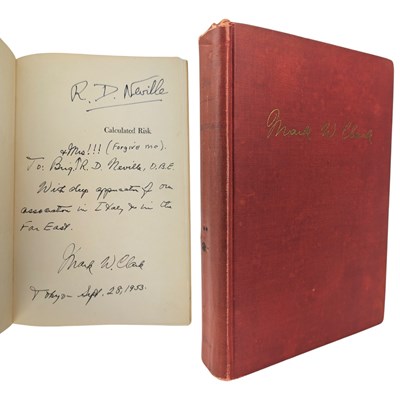 R. D. Neville
Calculated Risk
& Mrs!!! (Forgive me).
To: Brig. R. D. Neville, O.B.E.
With deep appreciation of our
association in Italy & in the
Far East.
Mark W. Clark
Tokyo Sept. 28, 1953.
Mark W. Clark